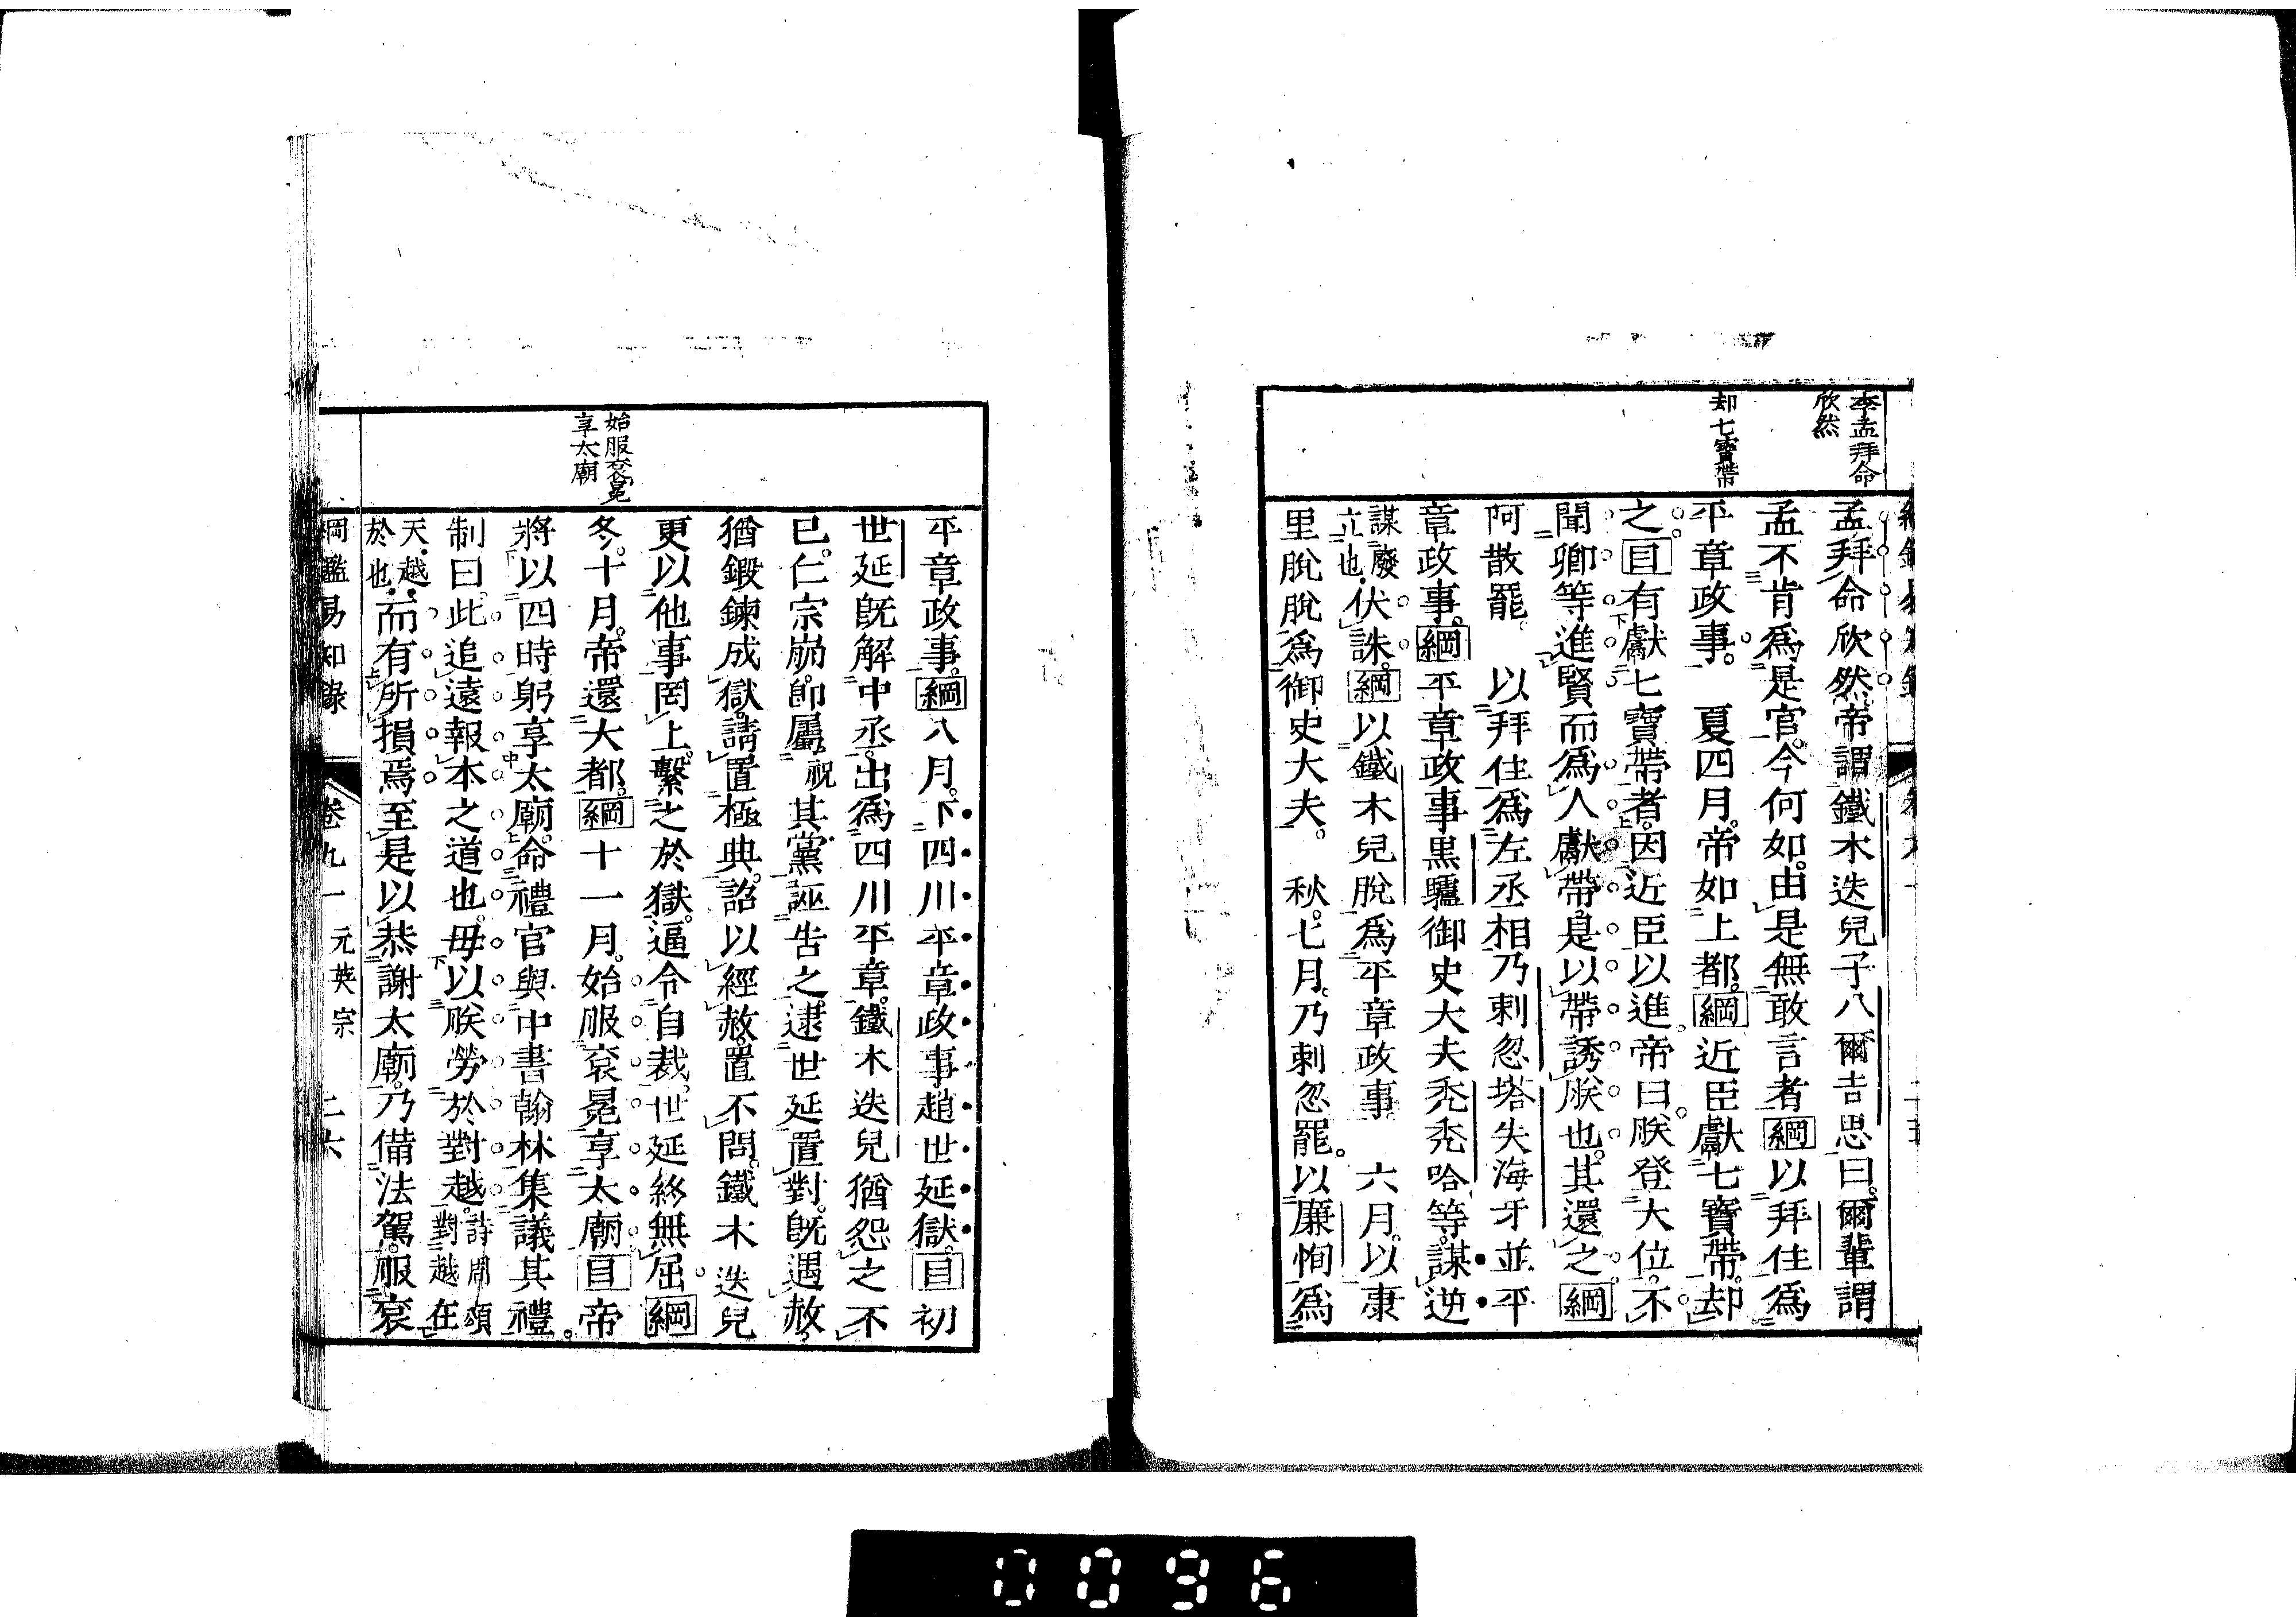 李孟拜命
欣然
却七寶帶
孟拜命欣然。帝謂鐵木迭兒子八爾吉思曰。爾輩謂
孟不肯爲是官。今何如。由是無敢言者。綱以拜住爲
平章政事。夏四月。帝如上都。綱近臣獻七寶帶。却
之。目有獻七寶帶者。因近臣以進。帝曰。朕登大位。不
聞卿等進賢而爲人獻帶。是以帶誘朕也。其還之。綱
阿散罷。以拜住爲左丞相。乃剌忽塔失海牙並平
章政事。綱平章政事黒驢御史大夫禿禿哈等。謀逆
謀廢
立也。伏誅。綱以鐵木兒脫爲平章政事。六月。以康
里脫脫爲御史大夫。秋。七月。乃剌忽罷。以廉恂爲
始服袞冕
享太廟
平章政事。綱八月。下四川平章政事趙世延獄。目初
世延既解中丞。出爲四川平章。鐵木迭兒猶怨之不
已。仁宗崩。卽屬祝其黨誣告之。逮世延置對。旣遇赦。
猶鍛鍊成獄。請置極典。詔以經赦。置不問。鐵木迭兒
更以他事罔上。繫之於獄。逼令自裁。世延終無屈。綱
冬。十月。帝還大都。綱十一月。始服袞冕享太廟。目帝
將以四時躬享太廟。命禮官與中書翰林集議其禮。
制曰。此追遠報本之道也。毋以朕勞於對越。詩周頌
對越在
天。越。
於也。而有所損焉。至是以恭謝太廟。乃備法駕。服袞
綱鑑易知錄 卷九一 元英宗 二六
0096